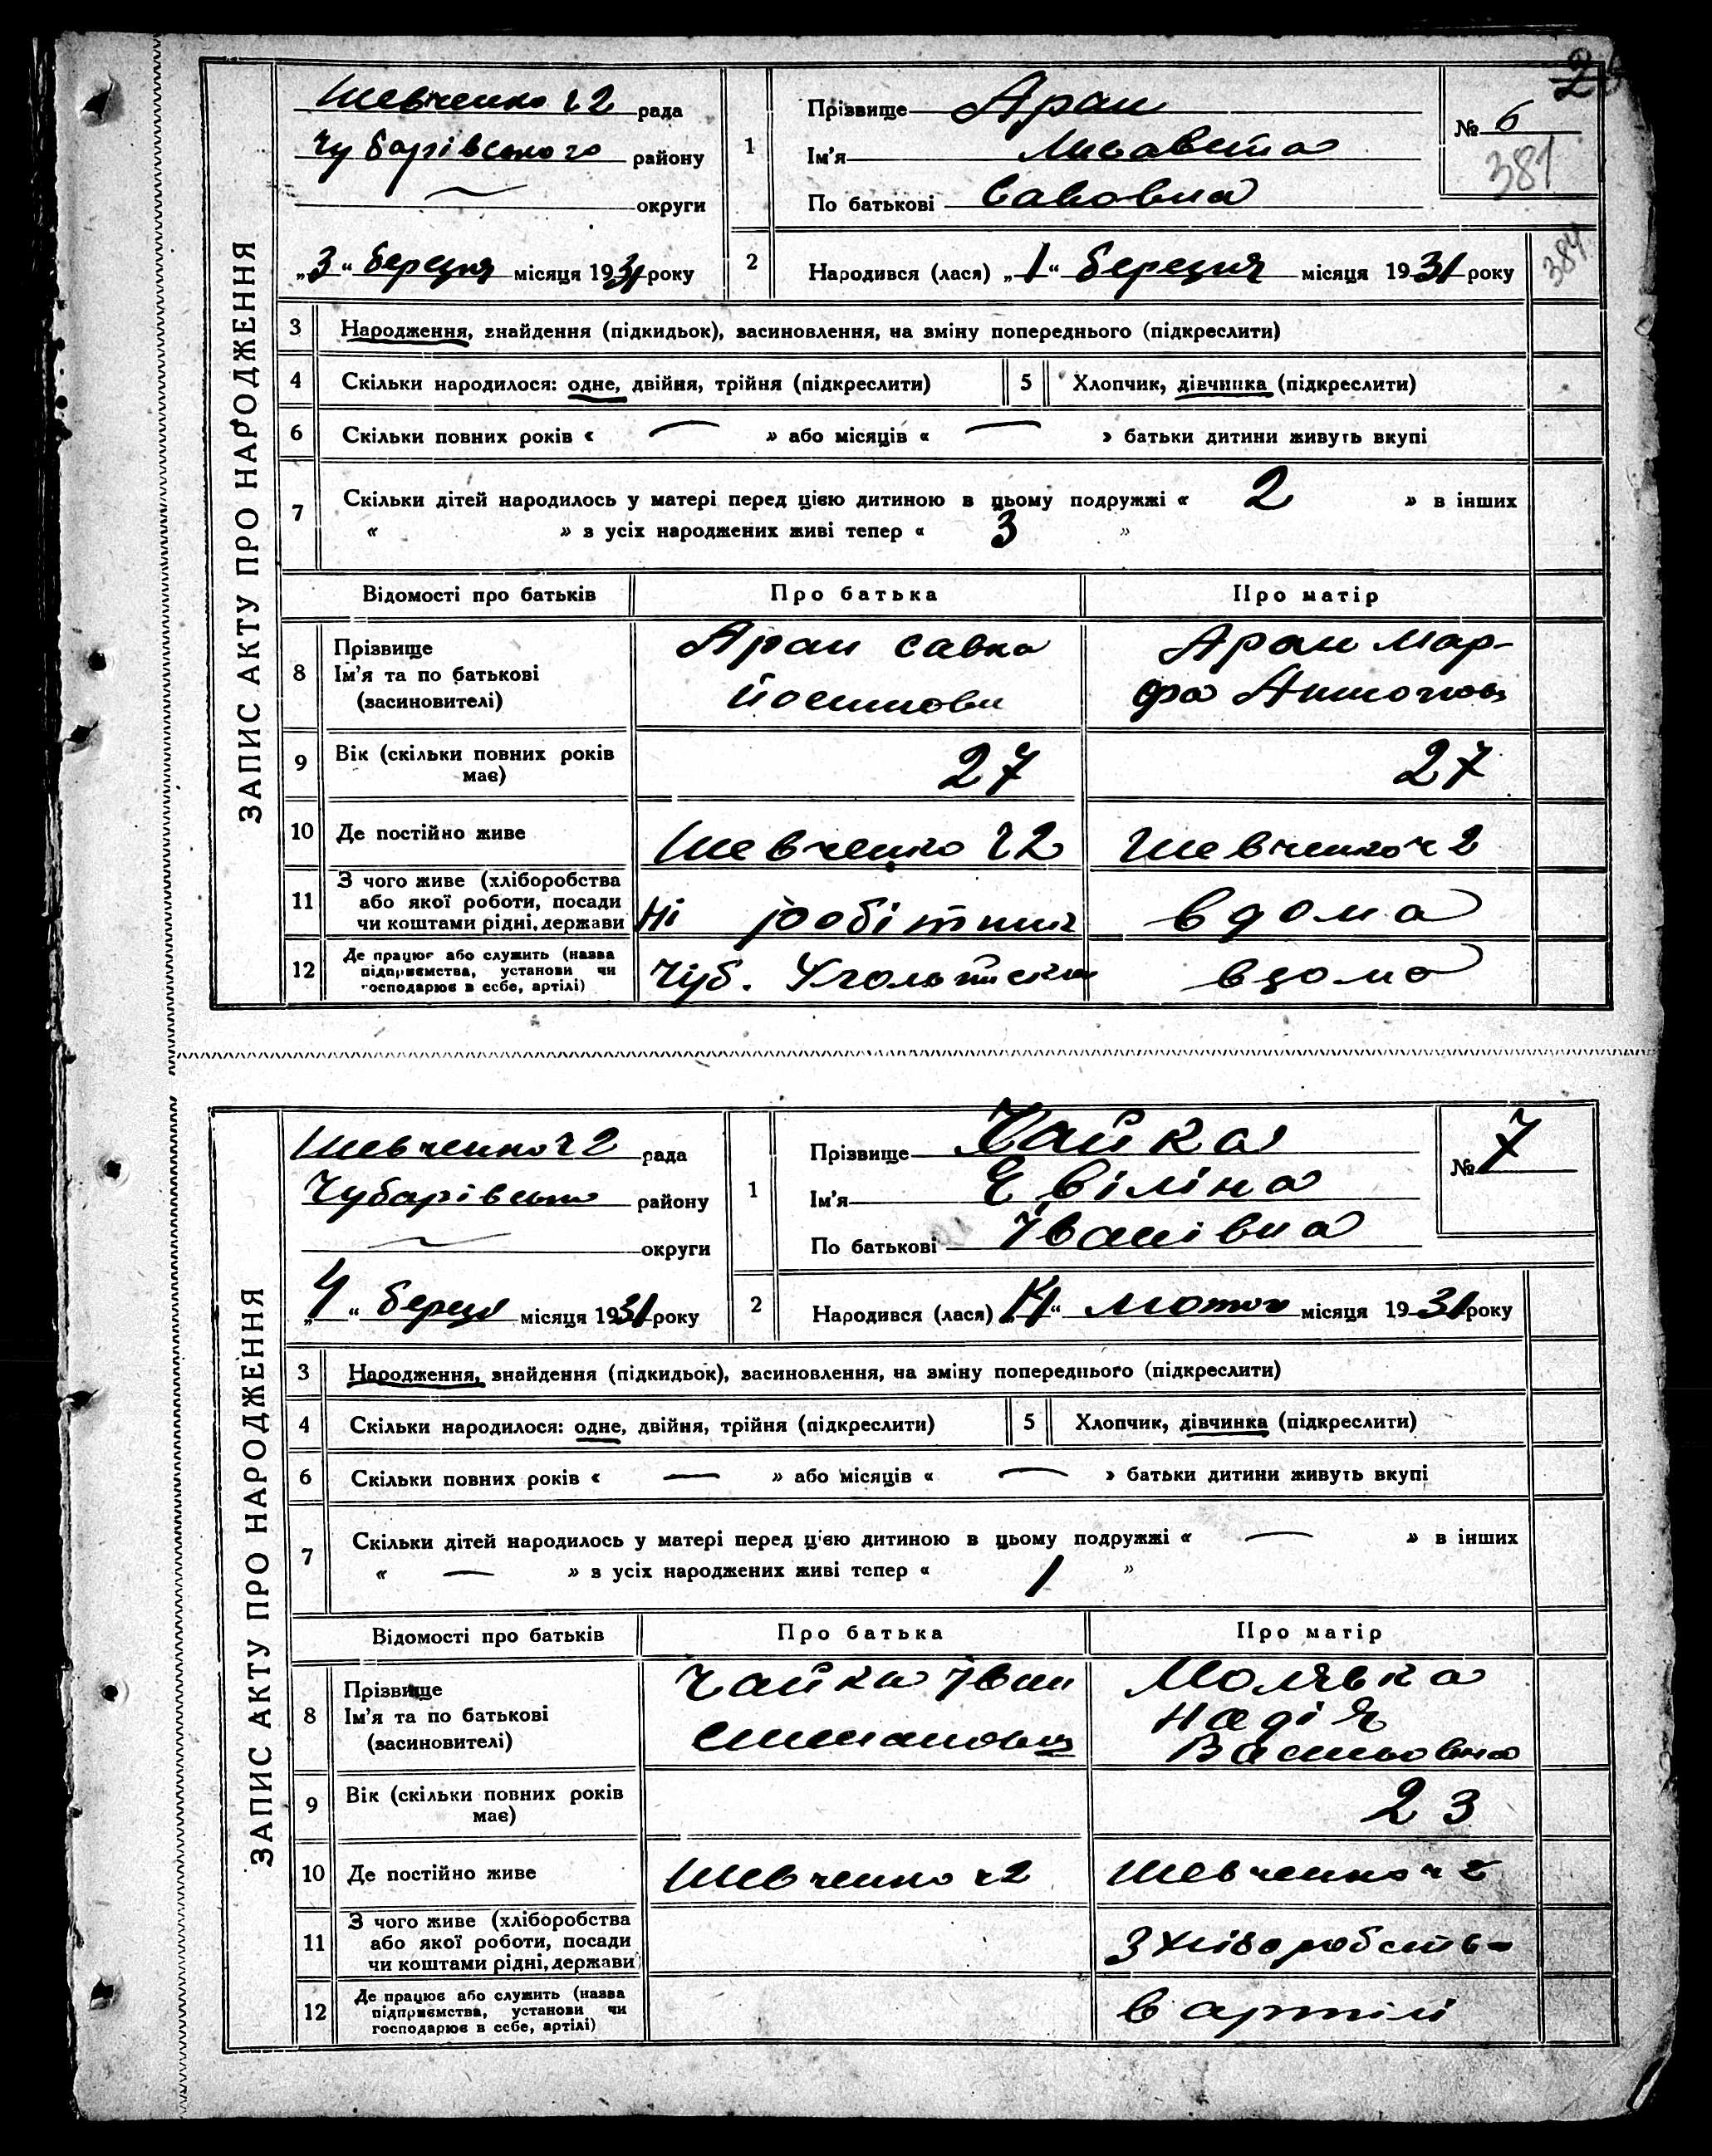 2
ЗАПИС АКТУ ПРО НАРОДЖЕННЯ
Шевченко ч2 рада
Чубарівського району
округи
„3“ березня місяця 1931 року
1
Прізвище Аран
Ім'я Лисавета
По батькові Савовна
№ 6
381
384
2 Народився (лася) „1“ березня місяця 1931 року
3 Народження, знайдення (підкидьок), засиновлення, на зміну попереднього (підкреслити)
4 Скільки народилося: одне, двійня, трійня (підкреслити) 5 Хлопчик, дівчинка (підкреслити)
6 Скільки повних років « — » або місяців « — » батьки дитини живуть вкупі
7 Скільки дітей народилось у матері перед цією дитиною в цьому подружжі « 2 » в інших
« » з усіх народжених живі тепер « 3 »
Відомості про батьків Про батька Про матір
8 Прізвище Ім'я та по батькові (засиновителі)
Аран Савка
Аран Мар-
фа
9 Вік (скільки повних років має) 27 27
10 Де постійно живе Шевченко ч2 Шевченко ч2
11 З чого живе (хліборобства або якої роботи, посади чи коштами рідні, держави
робітник вдома
12 Де працює або служить (назва підприємства, установи чи господарює в себе, артілі)
Чуб. вдома
ЗАПИС АКТУ ПРО НАРОДЖЕННЯ
Шевченко ч2 рада
Чубарівсько району
округи
„4“ березн місяця 1931 року
1
Прізвище Чайка
Ім'я Евіліна
По батькові Іванівна
№ 7
2 Народився (лася) лютого місяця 1931 року
3 Народження, знайдення (підкидьок), засиновлення, на зміну попереднього (підкреслити)
4 Скільки народилося: одне, двійня, трійня (підкреслити) 5 Хлопчик, дівчинка (підкреслити)
6 Скільки повних років « — » або місяців « — » батьки дитини живуть вкупі
7 Скільки дітей народилось у матері перед цією дитиною в цьому подружжі « — » в інших
« — » з усіх народжених живі тепер « 1 »
Відомості про батьків Про батька Про матір
8 Прізвище Ім'я та по батькові (засиновителі)
Чайка Іван
Молявка
Надія
Васильовна
9 Вік (скільки повних років має) 23
10 Де постійно живе Шевченко ч2 Шевченко ч2
11 З чого живе (хліборобства або якої роботи, посади чи коштами рідні, держави
З хліборобств
12 Де працює або служить (назва підприємства, установи чи господарює в себе, артілі)
в артілі